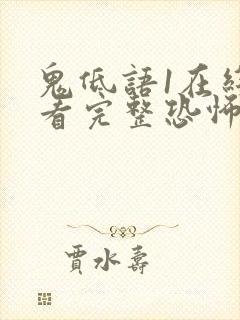 鬼低語1在
看完整恐怖
賈水壽